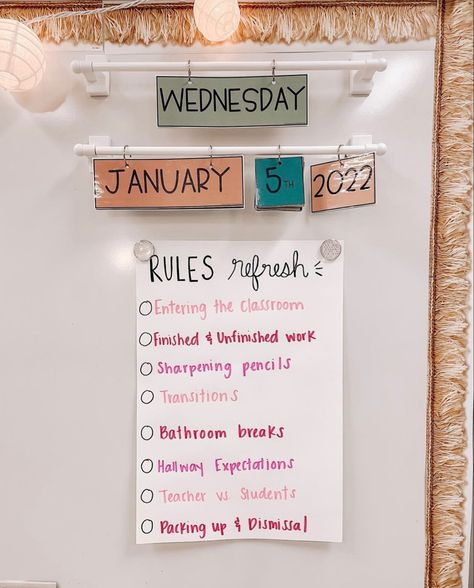 WEDNESDAY
JANUARY 5TH 2022
RULES refresh
Entering the Classroom
Finished & Unfinished work
Sharpening pencils
Transitions
Bathroom breaks
Hallway Expectations
Teacher vs. Students
Packing up & Dismissal